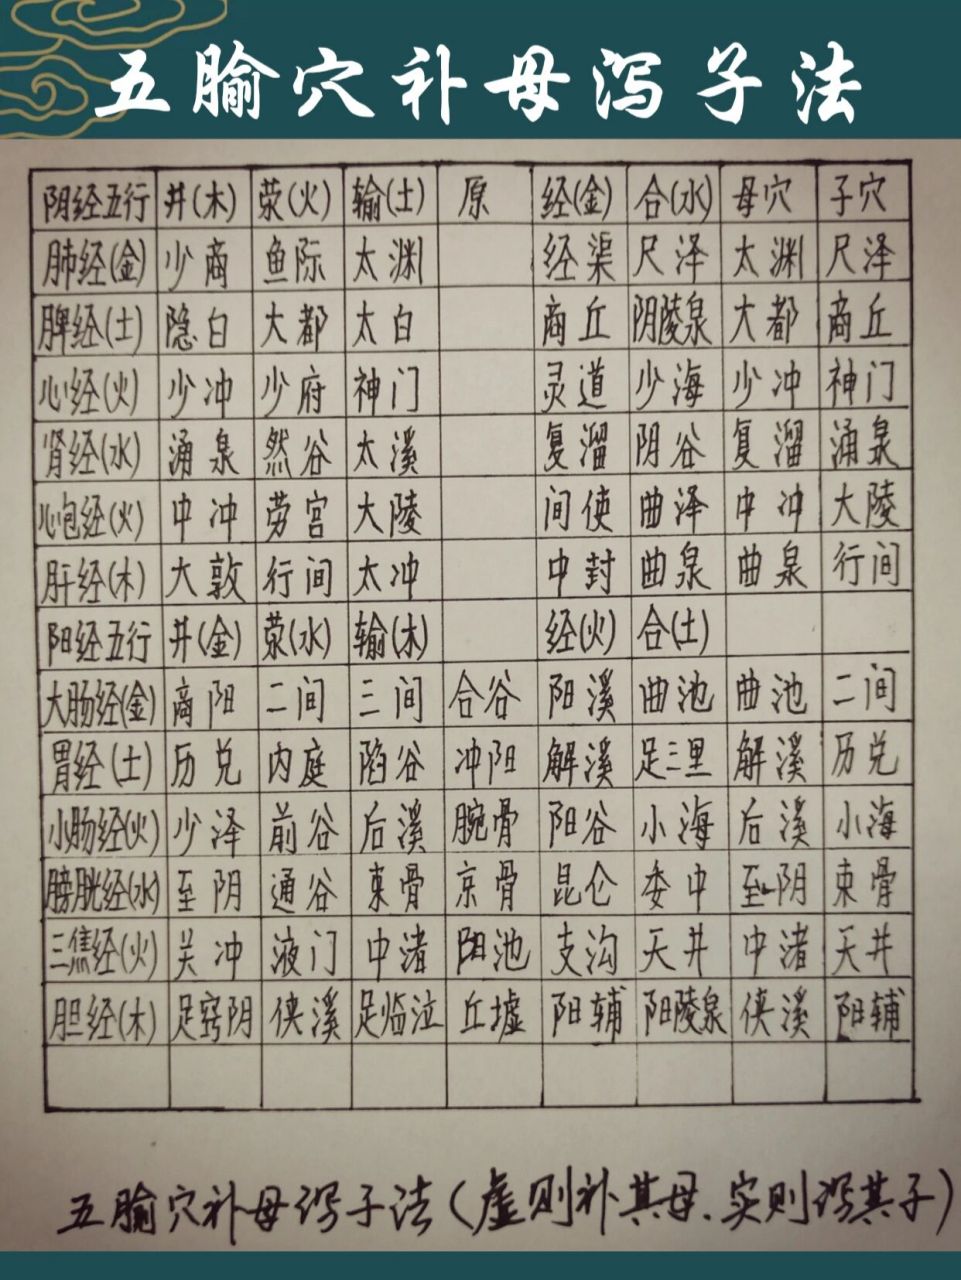 五腧穴补母泻子法
阴经五行 井(木) 荥(火) 输(土) 原 经(金) 合(水) 母穴 子穴
肺经(金) 少商 鱼际 太渊 经渠 尺泽 太渊 尺泽
脾经(土) 隐白 大都 太白 商丘 阴陵泉 大都 商丘
心经(火) 少冲 少府 神门 灵道 少海 少冲 神门
肾经(水) 涌泉 然谷 太溪 复溜 阴谷 复溜 涌泉
心包经(火) 中冲 劳宫 大陵 间使 曲泽 中冲 大陵
肝经(木) 大敦 行间 太冲 中封 曲泉 曲泉 行间
阳经五行 井(金) 荥(水) 输(木) 经(火) 合(土)
大肠经(金) 商阳 二间 三间 合谷 阳溪 曲池 曲池 二间
胃经(土) 历兑 内庭 陷谷 冲阳 解溪 足三里 解溪 历兑
小肠经(火) 少泽 前谷 后溪 腕骨 阳谷 小海 后溪 小海
膀胱经(水) 至阴 通谷 束骨 京骨 昆仑 委中 至阴 束骨
三焦经(火) 关冲 液门 中渚 阳池 支沟 天井 中渚 天井
胆经(木) 足窍阴 侠溪 足临泣 丘墟 阳辅 阳陵泉 侠溪 阳辅
五腧穴补母泻子法(虚则补其母、实则泻其子)